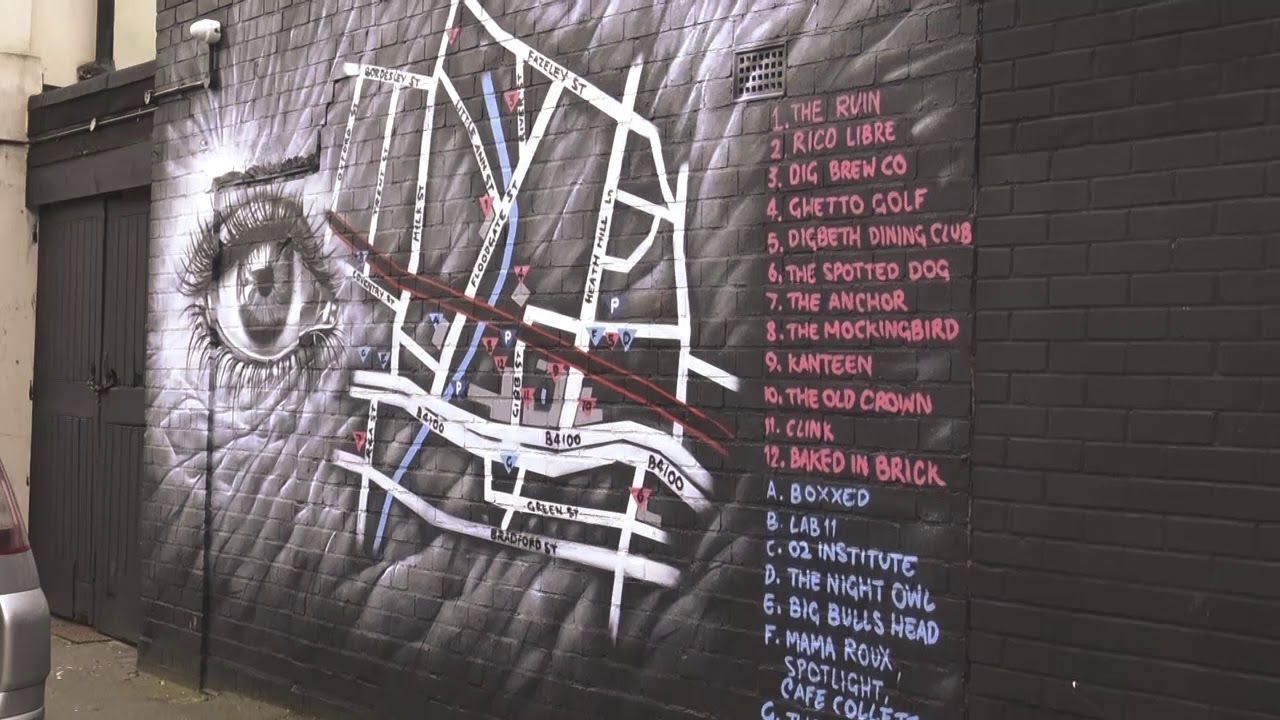 FAZELEY ST
BORDESLEY ST
OXFORD ST
LITTLE ANN ST
RIVER ST
MILK ST
FLOODGATE ST
HEATH MILL LN
P
P
A
F
D
P
GIBB ST
B4100
B4100
B4100
GREEN ST
BRADFORD ST
1. THE RUIN
2. RICO LIBRE
3. DIG BREW CO
4. GHETTO GOLF
5. DIGBETH DINING CLUB
6. THE SPOTTED DOG
7. THE ANCHOR
8. THE MOCKINGBIRD
9. KANTEEN
10. THE OLD CROWN
11. CLINK
12. BAKED IN BRICK
A. BOXXED
B. LAB 11
C. O2 INSTITUTE
D. THE NIGHT OWL
E. BIG BULLS HEAD
F. MAMA ROUX
SPOTLIGHT,
CAFE COLLETT
G.